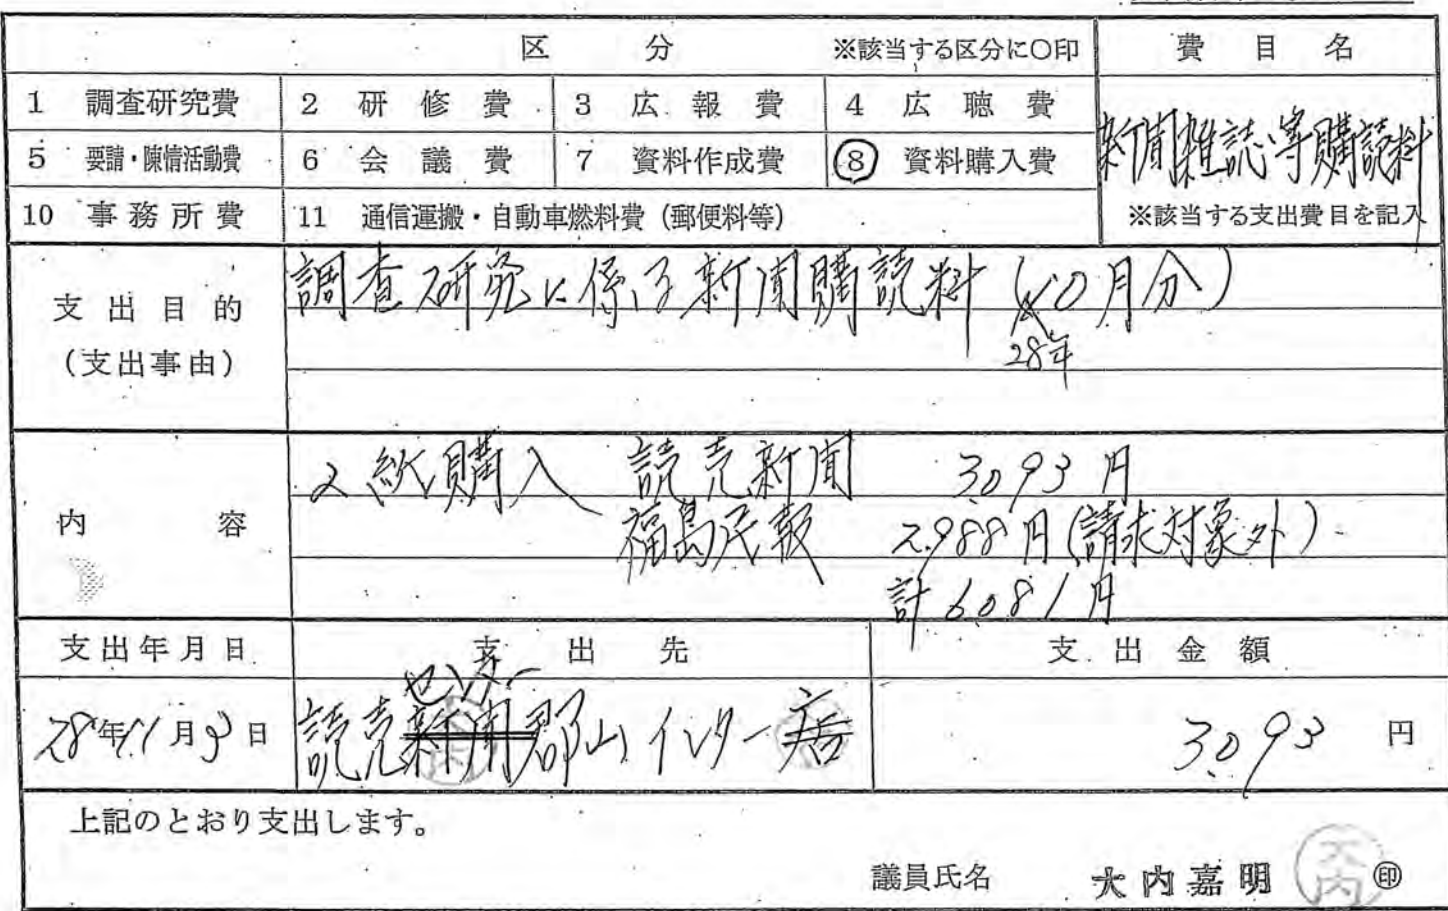 区 分 ※該当する区分に○印 費 目 名
1 調査研究費 2 研 修 費 3 広 報 費 4 広 聴 費
新聞雑誌等購読料
5 要請・陳情活動費 6 会 議 費 7 資料作成費 ⑧ 資料購入費
10 事 務 所 費 11 通信運搬・自動車燃料費（郵便料等） ※該当する支出費目を記入
支 出 目 的
（支出事由）
調査研究に係る新聞購読料（10月分）
28年
内 容
2紙購入 読売新聞 3,093円
福島民報 2,988円（請求対象外）
計6,081円
支出年月日 支 出 先 支 出 金 額
センター
28年11月3日 読売新聞郡山インター店 3,093 円
上記のとおり支出します。
議員氏名 大内嘉明 大内 ㊞